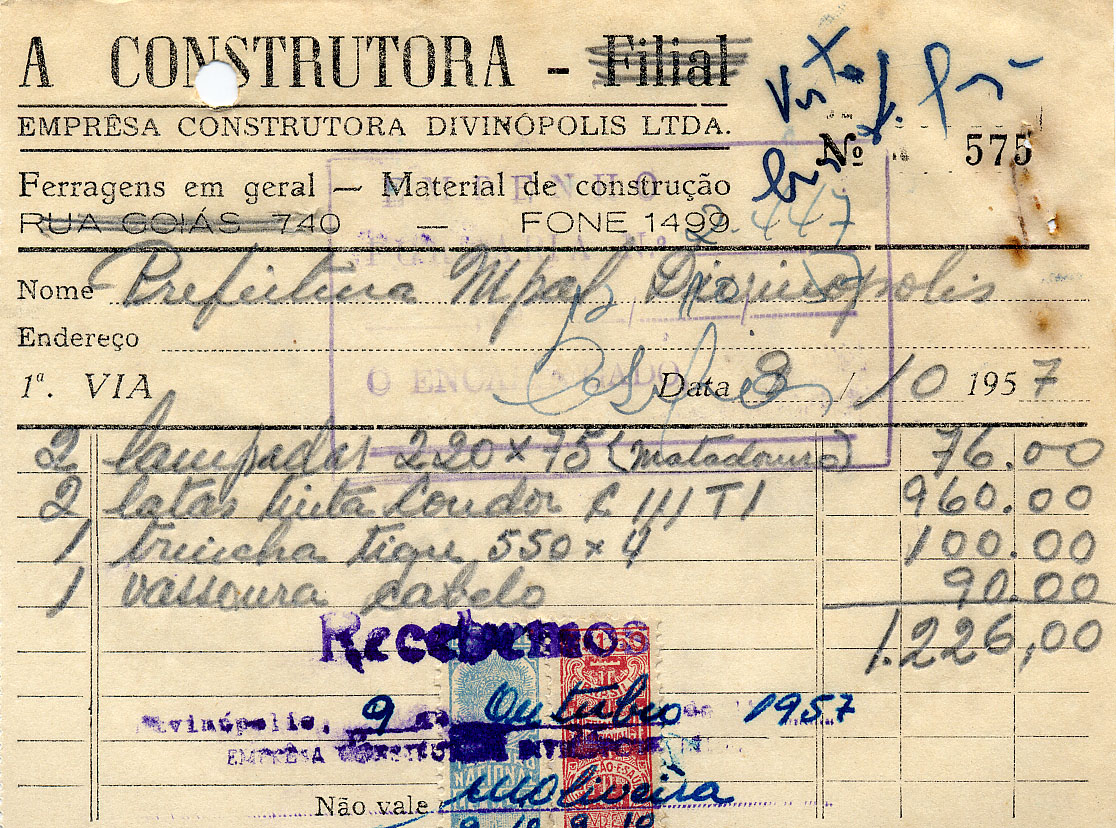 A CONSTRUTORA - Filial
EMPRÊSA CONSTRUTORA DIVINÓPOLIS LTDA.
Visto
Nº 575
Ferragens em geral — Material de construção
RUA GOIÁS 740 — FONE 1499
EMPENHO
Nº 2.447
Nome Prefeitura Mpal Divinopolis
Endereço
O ENCARREGADO
1ª. VIA Data 8 / 10 1957
2 lampadas 220 x 75 (Matadouro) 76.00
2 latas tinta Condor 960.00
1 trincha tigre 550 x 4 100.00
1 vassoura cabelo 90.00
1.226,00
Recebemos
1,50
Divinópolis, 9 de Outubro de 1957
EMPRÊSA CONSTRUTORA DIVINÓPOLIS
NACIONAL
Não vale MOliveira
9 10 9 10